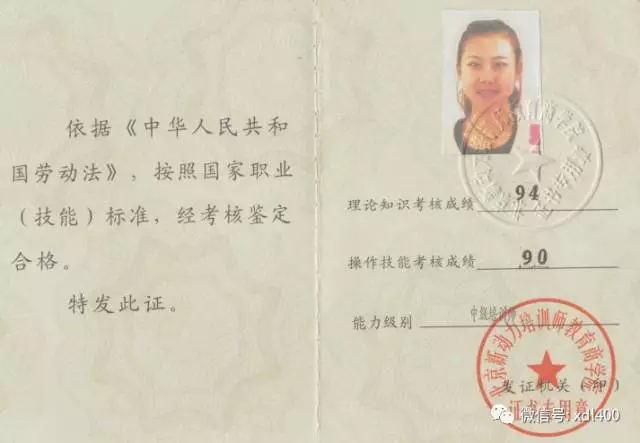 依据《中华人民共和
国劳动法》，按照国家职业
（技能）标准，经考核鉴定
合格。
特发此证。
理论知识考核成绩 94
操作技能考核成绩 90
能力级别 中级培训师
北京新动力培训师教育商学院
发证机关（印）
证书专用章
微信号: xdl400